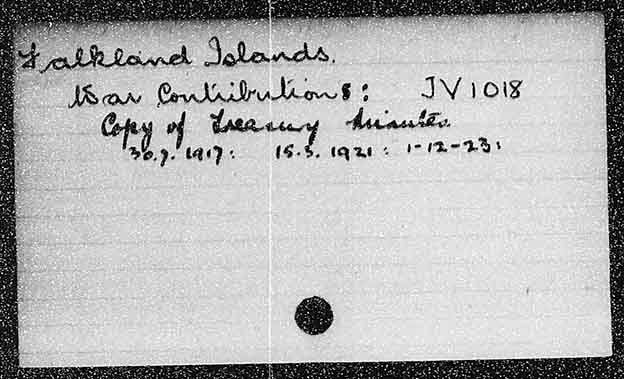 Falkland Islands.
War Contributions: JV1018
Copy of Treasury Minutes.
30.7.1917: 15.3.1921: 1-12-23: